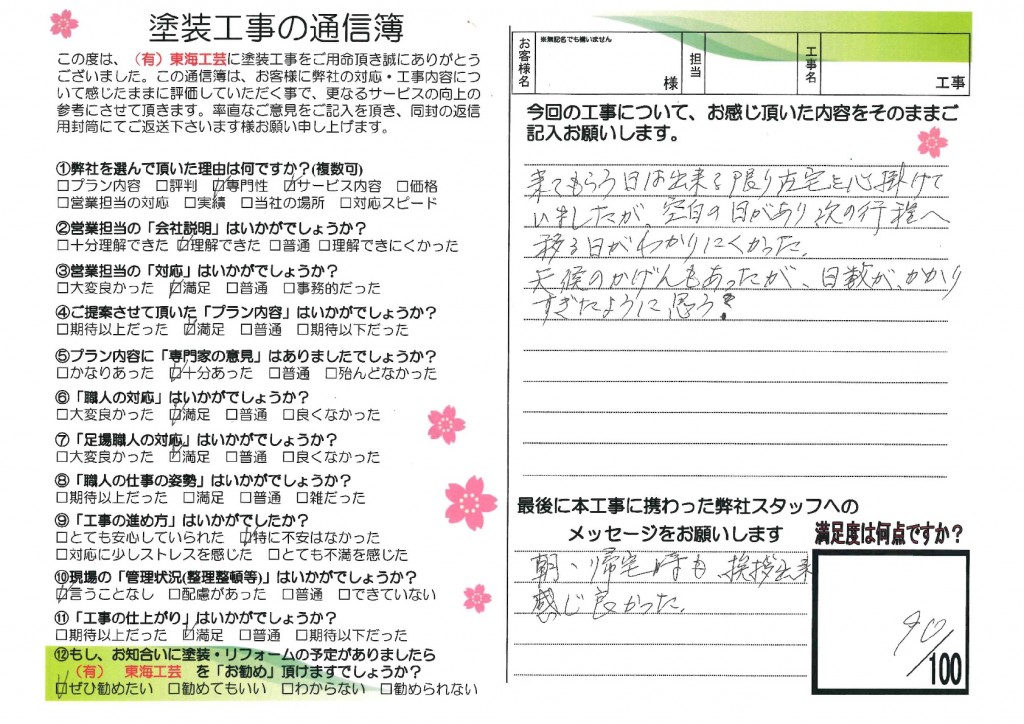 塗装工事の通信簿
この度は、(有)東海工芸に塗装工事をご用命頂き誠にありがとう
ございました。この通信簿は、お客様に弊社の対応・工事内容につ
いて感じたままに評価していただく事で、更なるサービスの向上の
参考にさせて頂きます。率直なご意見をご記入を頂き、同封の返信
用封筒にてご返送下さいます様お願い申し上げます。
①弊社を選んで頂いた理由は何ですか?(複数可)
□プラン内容 □評判 □専門性 □サービス内容 □価格
□営業担当の対応 □実績 □当社の場所 □対応スピード
②営業担当の「会社説明」はいかがでしょうか?
□十分理解できた □理解できた □普通 □理解できにくかった
③営業担当の「対応」はいかがでしょうか?
□大変良かった □満足 □普通 □事務的だった
④ご提案させて頂いた「プラン内容」はいかがでしょうか?
□期待以上だった □満足 □普通 □期待以下だった
⑤プラン内容に「専門家の意見」はありましたでしょうか?
□かなりあった □十分あった □普通 □殆んどなかった
⑥「職人の対応」はいかがでしょうか?
□大変良かった □満足 □普通 □良くなかった
⑦「足場職人の対応」はいかがでしょうか?
□大変良かった □満足 □普通 □良くなかった
⑧「職人の仕事の姿勢」はいかがでしょうか?
□期待以上だった □満足 □普通 □雑だった
⑨「工事の進め方」はいかがでしたか?
□とても安心していられた □特に不安はなかった
□対応に少しストレスを感じた □とても不満を感じた
⑩現場の「管理状況(整理整頓等)」はいかがでしょうか?
□言うことなし □配慮があった □普通 □できていない
⑪「工事の仕上がり」はいかがでしょうか?
□期待以上だった □満足 □普通 □期待以下だった
⑫もし、お知合いに塗装・リフォームの予定がありましたら
(有) 東海工芸 を「お勧め」頂けますでしょうか?
□ぜひ勧めたい □勧めてもいい □わからない □勧められない
お客様名 ※無記名でも構いません 様 担当 工事名 工事
今回の工事について、お感じ頂いた内容をそのままご
記入お願いします。
来てもらう日は出来る限り在宅を心掛けて
いましたが、空白の日があり次の行程へ
移る日がわかりにくかった。
天候のかげんもあったが、日数が、かかり
すぎたように思う。
最後に本工事に携わった弊社スタッフへの
メッセージをお願いします
朝、帰宅時も、挨拶出来
感じ良かった。
満足度は何点ですか?
90/100